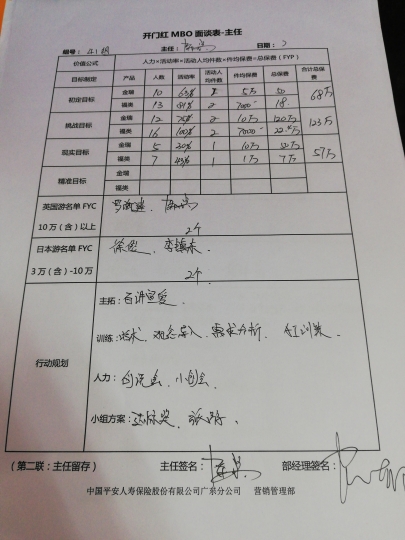 开门红 MBO 面谈表-主任
编号： 主任： 日期：
价值公式 人力×活动率×活动人均件数×件均保费=总保费（FYP）
目标制定 产品 人数 活动率 活动人均件数 件均保费 总保费 合计总保费
初定目标 金瑞 10 63% 5万 50 68万
福类 13 81% 2 7000 18
挑战目标 金瑞 12 75% 2 10万 120万 123万
福类 16 100% 2 7000
现实目标 金瑞 5 30% 1 10万 50万 57万
福类 7 43% 1 1万 7万
精准目标 金瑞
福类
英国游名单 FYC
10 万（含）以上
2个
日本游名单 FYC
3 万（含）-10万
2个
行动规划
主拓：百讲宣爱
训练：话术、观念导入、需求分析、
人力：创说会、小创会
小组方案：
（第二联：主任留存） 主任签名： 部经理签名：
中国平安人寿保险股份有限公司广东分公司 营销管理部